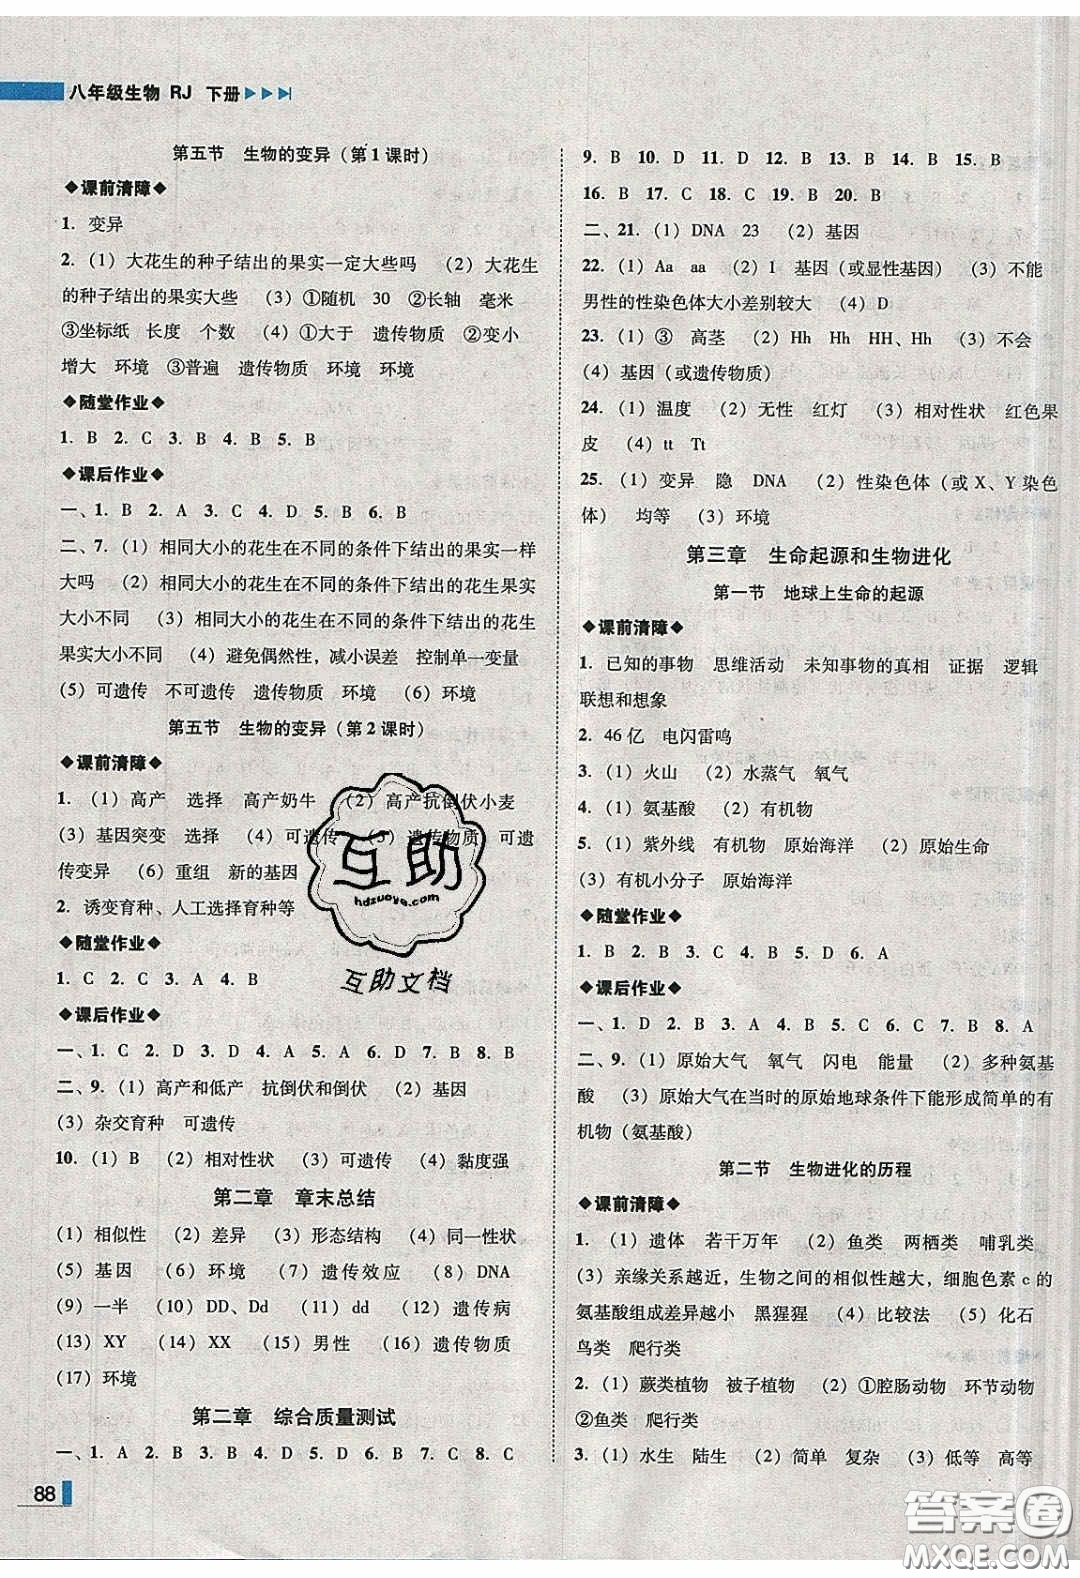 八年级生物 RJ 下册
第五节 生物的变异(第1课时)
◆课前清障◆
1. 变异
2. (1) 大花生的种子结出的果实一定大些吗 (2) 大花生
的种子结出的果实大些 (3) ①随机 30 ②长轴 毫米
③坐标纸 长度 个数 (4) ①大于 遗传物质 ②变小
增大 环境 ③普遍 遗传物质 环境 环境
◆随堂作业◆
1. B 2. C 3. B 4. B 5. B
◆课后作业◆
一、1. B 2. A 3. C 4. C 5. B 6. B
二、7. (1) 相同大小的花生在不同的条件下结出的果实一样
大吗 (2) 相同大小的花生在不同的条件下结出的花生果实
大小不同 (3) 相同大小的花生在不同的条件下结出的花生
果实大小不同 (4) 避免偶然性，减小误差 控制单一变量
(5) 可遗传 不可遗传 遗传物质 环境 (6) 环境
第五节 生物的变异(第2课时)
◆课前清障◆
1. (1) 高产 选择 高产奶牛 (2) 高产抗倒伏小麦
(3) 基因突变 选择 (4) 可遗传 (5) 遗传物质 可遗
传变异 (6) 重组 新的基因
2. 诱变育种、人工选择育种等
◆随堂作业◆
1. C 2. C 3. A 4. B
◆课后作业◆
一、1. C 2. D 3. D 4. D 5. A 6. D 7. B 8. B
二、9. (1) 高产和低产 抗倒伏和倒伏 (2) 基因
(3) 杂交育种 可遗传
10. (1) B (2) 相对性状 (3) 可遗传 (4) 黏度强
第二章 章末总结
(1) 相似性 (2) 差异 (3) 形态结构 (4) 同一性状
(5) 基因 (6) 环境 (7) 遗传效应 (8) DNA
(9) 一半 (10) DD、Dd (11) dd (12) 遗传病
(13) XY (14) XX (15) 男性 (16) 遗传物质
(17) 环境
第二章 综合质量测试
一、1. A 2. B 3. D 4. B 5. D 6. B 7. C 8. C
88
9. B 10. D 11. D 12. B 13. C 14. B 15. B
16. B 17. C 18. C 19. B 20. B
二、21. (1) DNA 23 (2) 基因
22. (1) Aa aa (2) 1 基因(或显性基因) (3) 不能
男性的性染色体大小差别较大 (4) D
23. (1) ③ 高茎 (2) Hh Hh HH、Hh (3) 不会
(4) 基因(或遗传物质)
24. (1) 温度 (2) 无性 红灯 (3) 相对性状 红色果
皮 (4) tt Tt
25. (1) 变异 隐 DNA (2) 性染色体(或 X、Y 染色
体) 均等 (3) 环境
第三章 生命起源和生物进化
第一节 地球上生命的起源
◆课前清障◆
1. 已知的事物 思维活动 未知事物的真相 证据 逻辑
联想和想象
2. 46 亿 电闪雷鸣
3. (1) 火山 (2) 水蒸气 氧气
4. (1) 氨基酸 (2) 有机物
5. (1) 紫外线 有机物 原始海洋 (2) 原始生命
(3) 有机小分子 原始海洋
◆随堂作业◆
1. B 2. B 3. B 4. C 5. D 6. A
◆课后作业◆
一、1. D 2. B 3. B 4. A 5. C 6. C 7. B 8. A
二、9. (1) 原始大气 氧气 闪电 能量 (2) 多种氨基
酸 (3) 原始大气在当时的原始地球条件下能形成简单的有
机物(氨基酸)
第二节 生物进化的历程
◆课前清障◆
1. (1) 遗体 若干万年 (2) 鱼类 两栖类 哺乳类
(3) 亲缘关系越近，生物之间的相似性越大，细胞色素 c 的
氨基酸组成差异越小 黑猩猩 (4) 比较法 (5) 化石
鸟类 爬行类
2. (1) 蕨类植物 被子植物 (2) ①腔肠动物 环节动物
②鱼类 爬行类
3. (1) 水生 陆生 (2) 简单 复杂 (3) 低等 高等
互助
hdzuoye.com
互助文档
答案圈
MXQE.COM